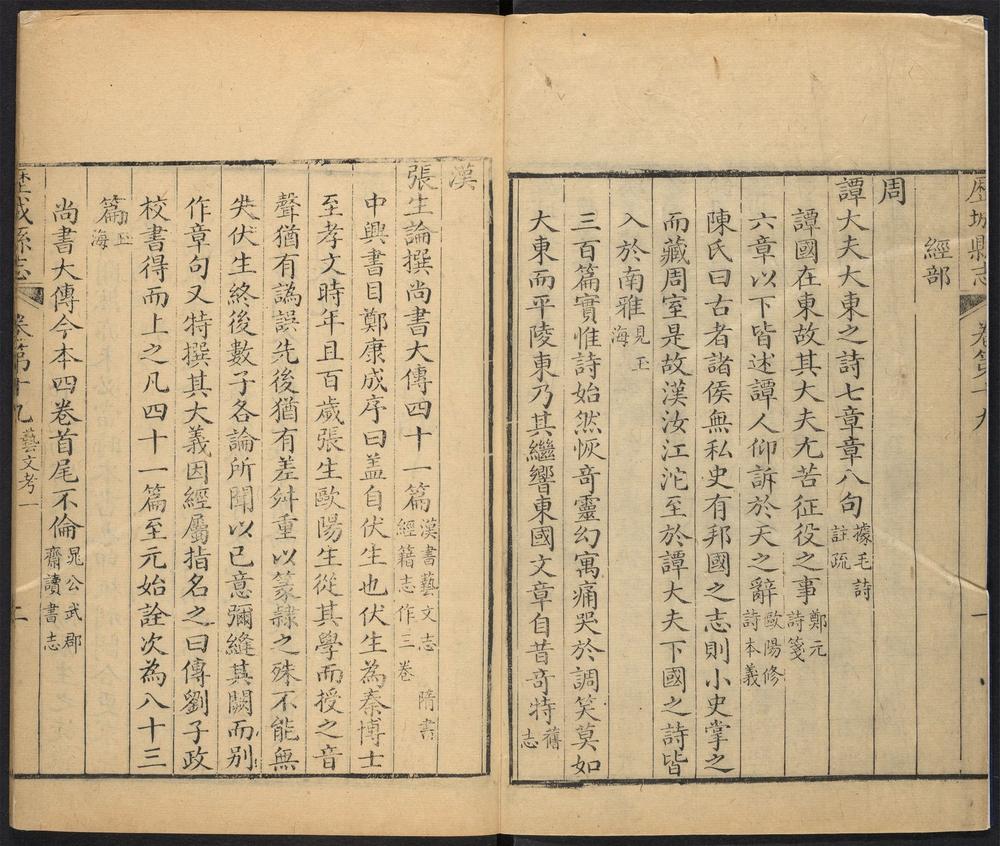 歷城縣志 卷第十九 一
經部
周
譚大夫大東之詩七章章八句據毛詩註疏
譚國在東故其大夫尤苦征役之事鄭元詩箋
六章以下皆述譚人仰訴於天之辭歐陽修詩本義
陳氏曰古者諸侯無私史有邦國之志則小史掌之
而藏周室是故漢汝江沱至於譚大夫下國之詩皆
入於南雅見玉海
三百篇實惟詩始然恢奇靈幻寓痛哭於調笑莫如
大東而平陵東乃其繼響東國文章自昔奇特舊志
漢
張生論撰尚書大傳四十一篇漢書藝文志 隋書經籍志作三卷
中興書目鄭康成序曰盖自伏生也伏生為秦博士
至孝文時年且百歲張生歐陽生從其學而授之音
聲猶有譌誤先後猶有差舛重以篆隷之殊不能無
失伏生終後數子各論所聞以已意彌縫其闕而别
作章句又特撰其大義因經屬指名之曰傳劉子政
校書得而上之凡四十一篇至元始詮次為八十三
篇玉海
尚書大傳今本四卷首尾不倫晁公武郡齋讀書志
歷城縣志 卷第十九 藝文考一 二